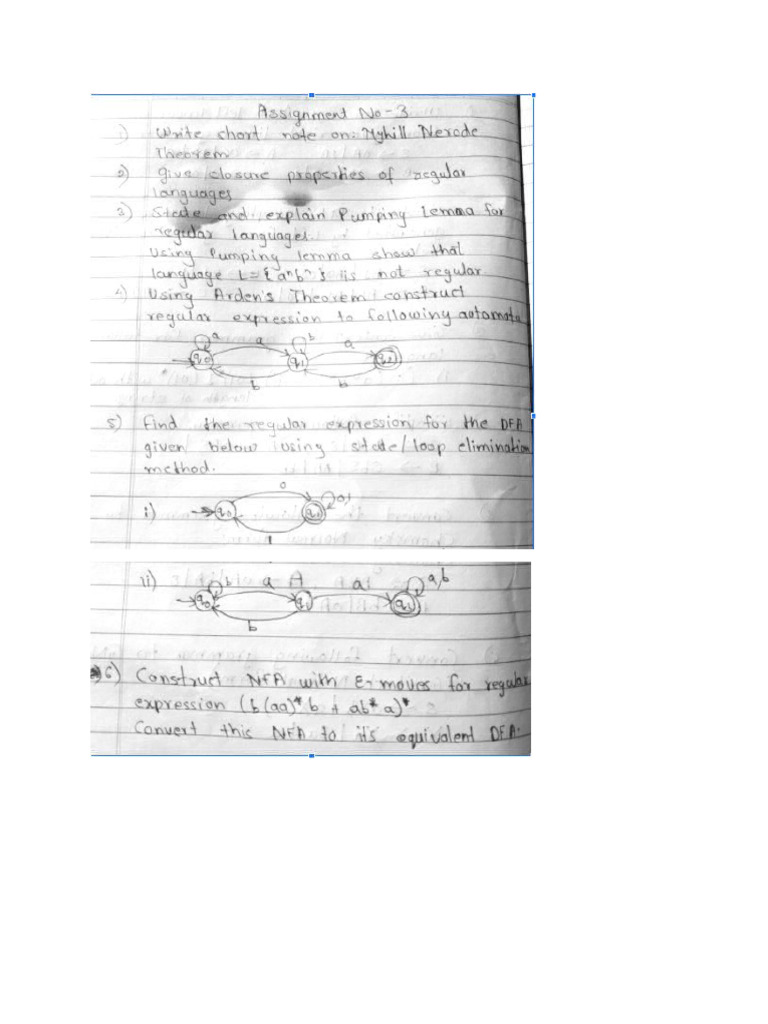 Assignment No-3
1) Write short note on: Myhill Nerode
Theorem
2) give closure properties of regular
languages
3) State and explain Pumping lemma for
regular languages.
Using Pumping lemma show that
language L={a^n b^n} is not regular
4) Using Arden's Theorem construct
regular expression to following automata
a a b a
q0 q1 q2
b b
5) Find the regular expression for the DFA
given below using state/loop elimination
method.
0 0,1
i) q0 q1
1
ii) b a A a a,b
q0 q1 q2
b
6) Construct NFA with ε-moves for regular
expression (b(aa)*b + ab*a)*
Convert this NFA to it's equivalent DFA.